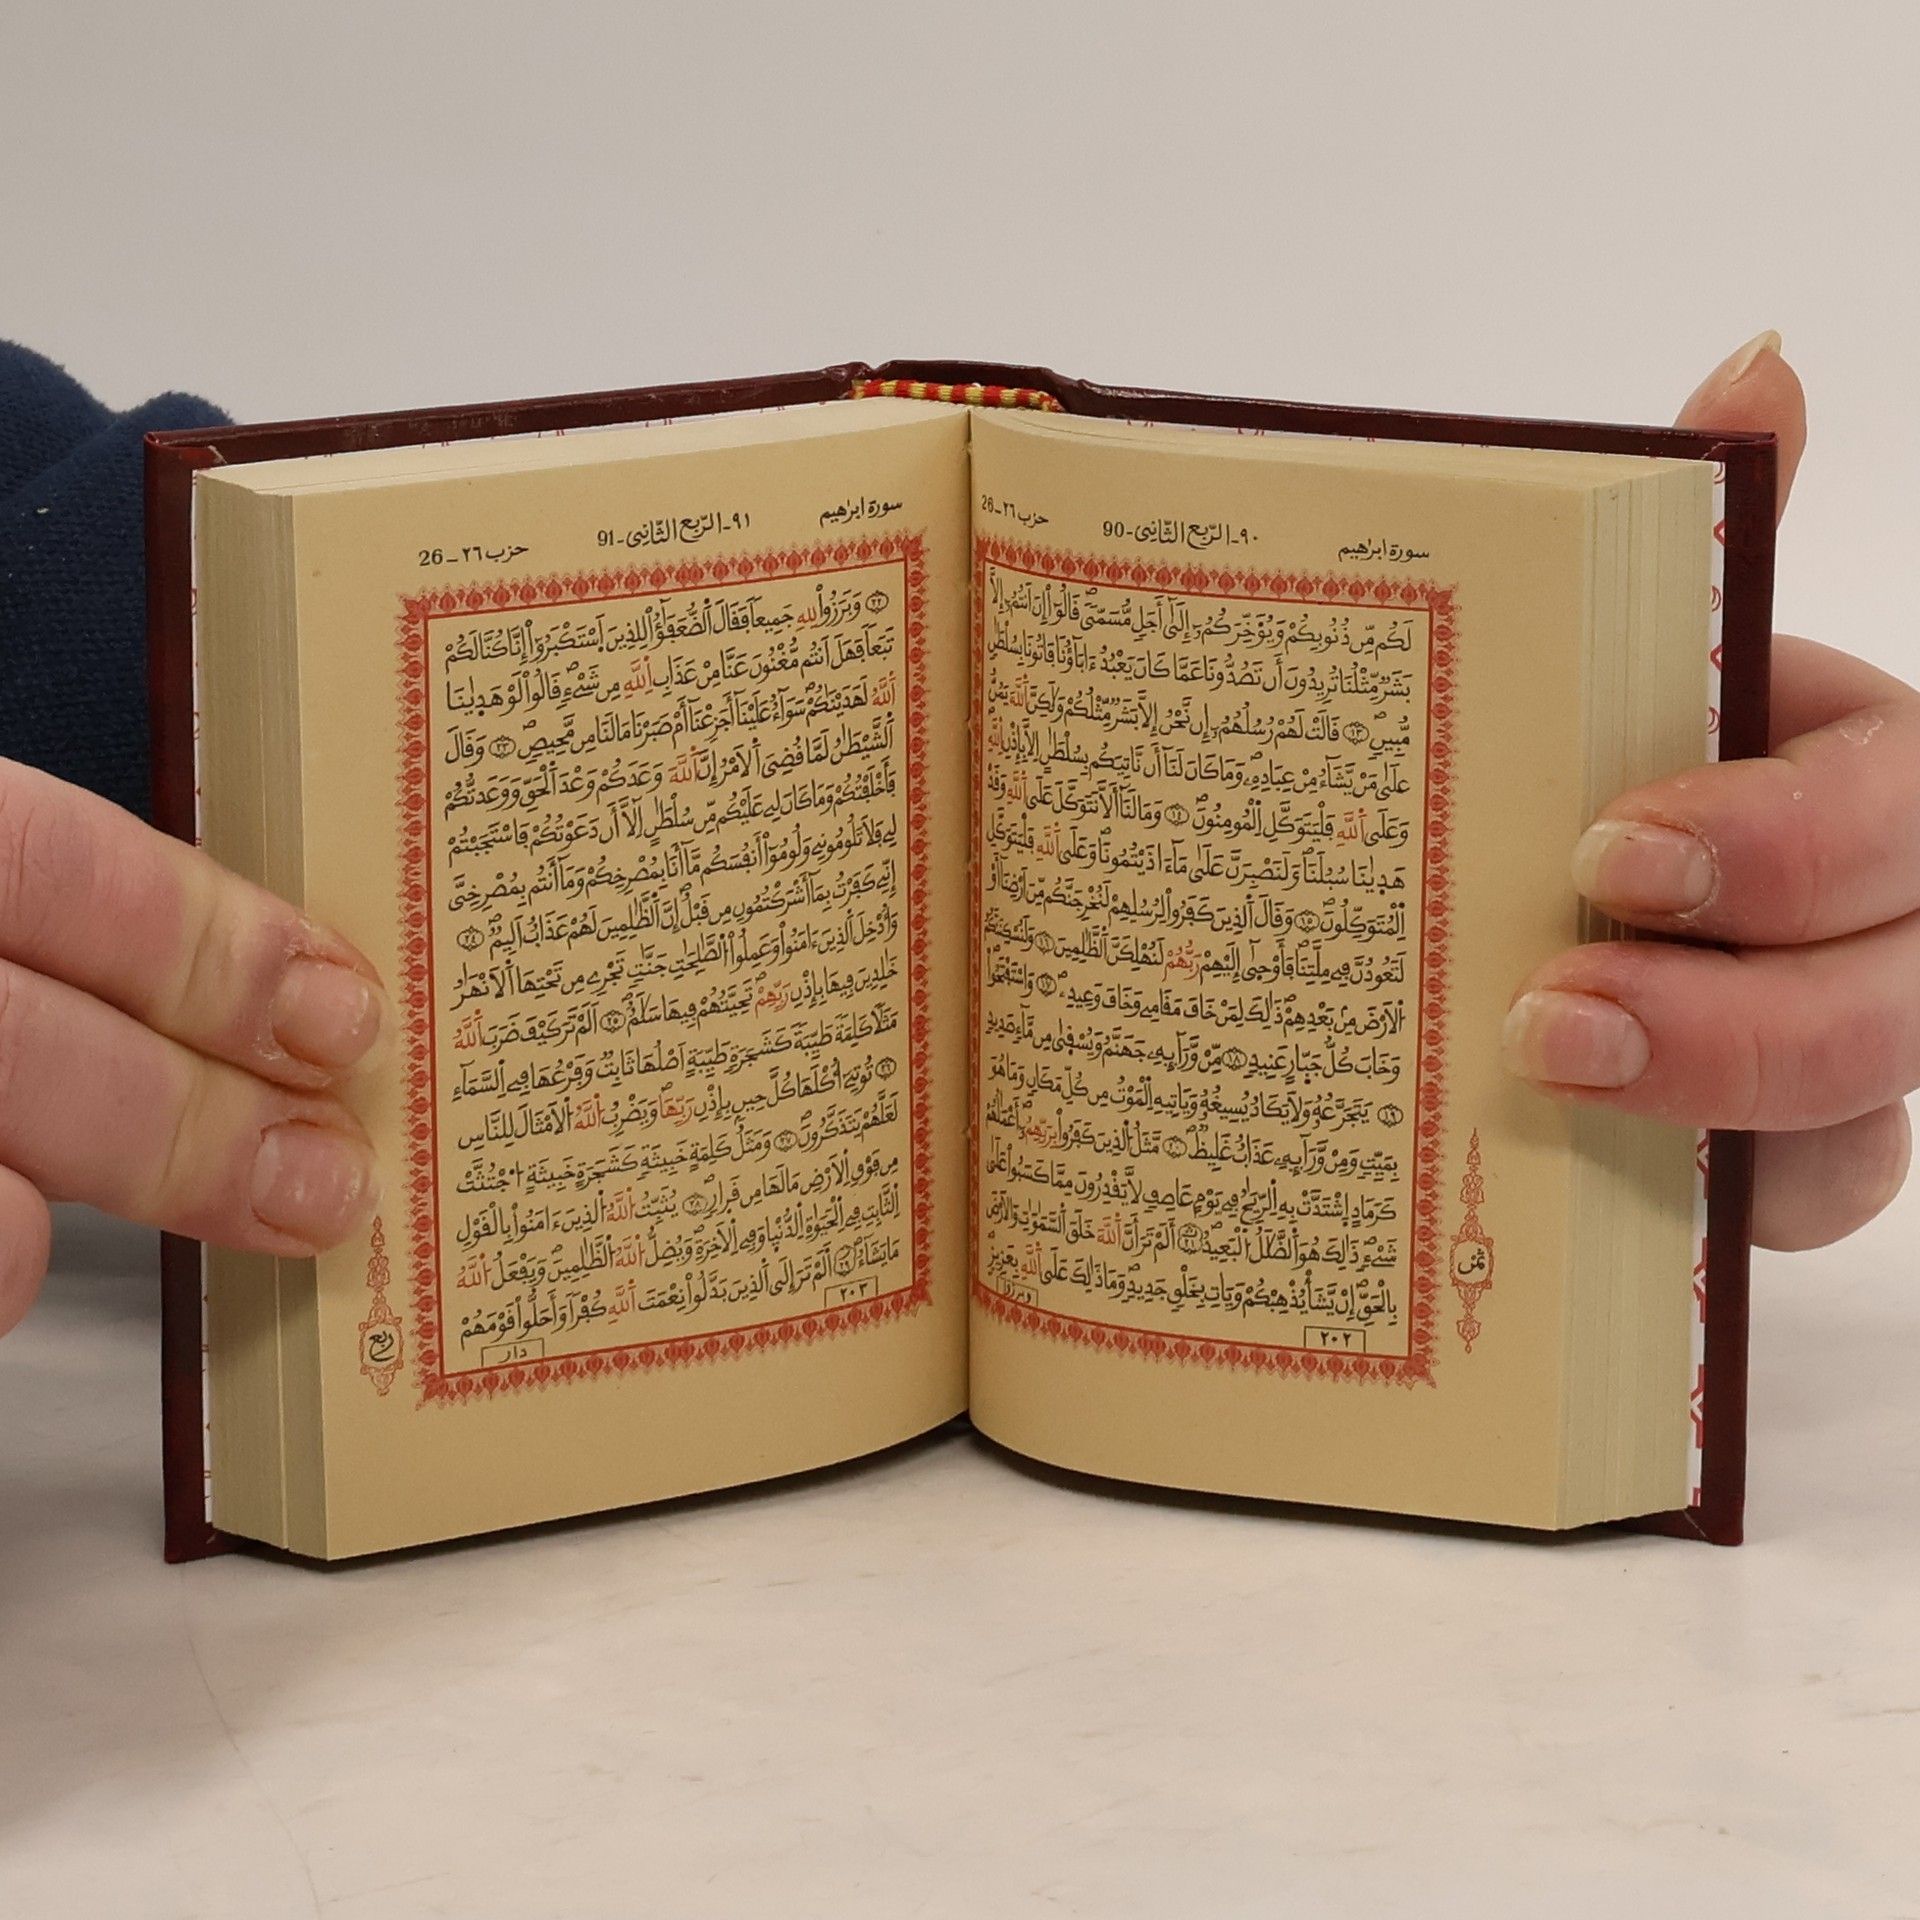 سورة ابراهيم ٩٠-الربع الثاني-90 حزب ٢٦-26
لَكُم مِّن ذُنُوبِكُمْ وَيُؤَخِّرَكُمُۥٓ إِلَىٰٓ أَجَلٍ مُّسَمّىًۖ قَالُوٓاْ إِنَ اَنتُمُۥٓ إِلَّا
بَشَرٌ مِّثْلُنَا تُرِيدُونَ أَن تَصُدُّونَا عَمَّا كَانَ يَعْبُدُ ءَابَآؤُنَا فَاتُونَا بِسُلْطَٰنٍ
مُّبِينٍۖ ١٣ قَالَتْ لَهُمْ رُسُلُهُمُۥٓ إِن نَّحْنُ إِلَّا بَشَرٌ مِّثْلُكُمْ وَلَٰكِنَّ اَللَّهَ يَمُنُّ
عَلَىٰ مَنْ يَّشَآءُ مِنْ عِبَادِهِۦۖ وَمَا كَانَ لَنَآ أَن نَّاتِيَكُم بِسُلْطَٰنٍ اِلَّا بِإِذْنِ اِللَّهِۖ
وَعَلَى اَللَّهِ فَلْيَتَوَكَّلِ اِلْمُومِنُونَۖ ١٤ وَمَا لَنَآ أَلَّا نَتَوَكَّلَ عَلَى اَللَّهِ وَقَدْ
هَدَىٰنَا سُبُلَنَاۖ وَلَنَصْبِرَنَّ عَلَىٰ مَآ ءَاذَيْتُمُونَاۖ وَعَلَى اَللَّهِ فَلْيَتَوَكَّلِ
اِلْمُتَوَكِّلُونَۖ ١٥ وَقَالَ اَلَّذِينَ كَفَرُواْ لِرُسُلِهِمْ لَنُخْرِجَنَّكُم مِّنَ اَرْضِنَآ أَوْ
لَتَعُودُنَّ فِي مِلَّتِنَاۖ فَأَوْحَىٰٓ إِلَيْهِمْ رَبُّهُمْ لَنُهْلِكَنَّ اَلظَّٰلِمِينَ ١٦ وَلَنُسْكِنَنَّكُمُ
اُلَارْضَ مِنۢ بَعْدِهِمْۖ ذَٰلِكَ لِمَنْ خَافَ مَقَامِي وَخَافَ وَعِيدِۦۖ ١٧ وَاسْتَفْتَحُواْ
وَخَابَ كُلُّ جَبَّارٍ عَنِيدٍ ١٨ مِّنْ وَّرَآئِهِۦ جَهَنَّمُ وَيُسْقَىٰ مِن مَّآءٍ صَدِيدٍ
١٩ يَتَجَرَّعُهُۥ وَلَا يَكَادُ يُسِيغُهُۥ وَيَاتِيهِ اِلْمَوْتُ مِن كُلِّ مَكَانٍ وَمَا هُوَ
بِمَيِّتٍ وَمِنْ وَّرَآئِهِۦ عَذَابٌ غَلِيظٌۖ ٢٠ مَّثَلُ اُلَّذِينَ كَفَرُواْ بِرَبِّهِمُۥٓ أَعْمَٰلُهُمْ
كَرَمَادٍ اِشْتَدَّتْ بِهِ اِلرِّيَٰحُ فِي يَوْمٍ عَاصِفٍ لَّا يَقْدِرُونَ مِمَّا كَسَبُواْ عَلَىٰ
شَيْءٍۖ ذَٰلِكَ هُوَ اَلضَّلَٰلُ اُلْبَعِيدُۖ ٢١ أَلَمْ تَرَ أَنَّ اَللَّهَ خَلَقَ اَلسَّمَٰوَٰتِ وَالَارْضَ
بِالْحَقِّۖ إِنْ يَّشَأْ يُذْهِبْكُمْ وَيَاتِ بِخَلْقٍ جَدِيدٍ وَمَا ذَٰلِكَ عَلَى اَللَّهِ بِعَزِيزٍ
٢٠٢ وبرزوا
ثمن
سورة ابراهيم ٩١-الربع الثاني-91 حزب ٢٦-26
٢٢ وَبَرَزُواْ لِلهِ جَمِيعاً فَقَالَ اَلضُّعَفَٰٓؤُاْ لِلَّذِينَ اَسْتَكْبَرُوٓاْ إِنَّا كُنَّا لَكُمْ
تَبَعاً فَهَلَ اَنتُم مُّغْنُونَ عَنَّا مِنْ عَذَابِ اِللَّهِ مِن شَيْءٍۖ قَالُواْ لَوْ هَدَىٰنَا
اَللَّهُ لَهَدَيْنَٰكُمْۖ سَوَآءٌ عَلَيْنَآ أَجَزِعْنَآ أَمْ صَبَرْنَا مَا لَنَا مِن مَّحِيصٍۖ ٢٣ وَقَالَ
اَلشَّيْطَٰنُ لَمَّا قُضِيَ اَلَامْرُ إِنَّ اَللَّهَ وَعَدَكُمْ وَعْدَ اَلْحَقِّ وَوَعَدتُّكُمْ
فَأَخْلَفْتُكُمْ وَمَا كَانَ لِي عَلَيْكُم مِّن سُلْطَٰنٍ اِلَّآ أَن دَعَوْتُكُمْ فَاسْتَجَبْتُمْ
لِي فَلَا تَلُومُونِي وَلُومُوٓاْ أَنفُسَكُم مَّآ أَنَا بِمُصْرِخِكُمْ وَمَآ أَنتُم بِمُصْرِخِيَّ
إِنِّي كَفَرْتُ بِمَآ أَشْرَكْتُمُونِ مِن قَبْلُۖ إِنَّ اَلظَّٰلِمِينَ لَهُمْ عَذَابٌ اَلِيمٌۖ ٢٤
وَأُدْخِلَ اَلَّذِينَ ءَامَنُواْ وَعَمِلُواْ اُلصَّٰلِحَٰتِ جَنَّٰتٍ تَجْرِي مِن تَحْتِهَا اَلَانْهَٰرُ
خَٰلِدِينَ فِيهَا بِإِذْنِ رَبِّهِمْۖ تَحِيَّتُهُمْ فِيهَا سَلَٰمٌۖ ٢٥ اَلَمْ تَرَ كَيْفَ ضَرَبَ اَللَّهُ
مَثَلاً كَلِمَةً طَيِّبَةً كَشَجَرَةٍ طَيِّبَةٍ اَصْلُهَا ثَابِتٌ وَفَرْعُهَا فِي اِلسَّمَآءِ
٢٦ تُوتِيٓ أُكْلَهَا كُلَّ حِينٍۢ بِإِذْنِ رَبِّهَاۖ وَيَضْرِبُ اُللَّهُ اُلَامْثَالَ لِلنَّاسِ
لَعَلَّهُمْ يَتَذَكَّرُونَۖ ٢٧ وَمَثَلُ كَلِمَةٍ خَبِيثَةٍ كَشَجَرَةٍ خَبِيثَةٍ اُجْتُثَّتْ
مِن فَوْقِ اِلَارْضِ مَا لَهَا مِن قَرَارٍۖ ٢٨ يُثَبِّتُ اُللَّهُ اُلَّذِينَ ءَامَنُواْ بِالْقَوْلِ
اِلثَّابِتِ فِي اِلْحَيَوٰةِ اِلدُّنْيَا وَفِي اِلَاخِرَةِۖ وَيُضِلُّ اُللَّهُ اُلظَّٰلِمِينَۖ وَيَفْعَلُ اُللَّهُ
مَا يَشَآءُۖ ٢٩ أَلَمْ تَرَ إِلَى اَلَّذِينَ بَدَّلُواْ نِعْمَتَ اَللَّهِ كُفْراً وَأَحَلُّواْ قَوْمَهُمْ
٢٠٣ دار
ربع